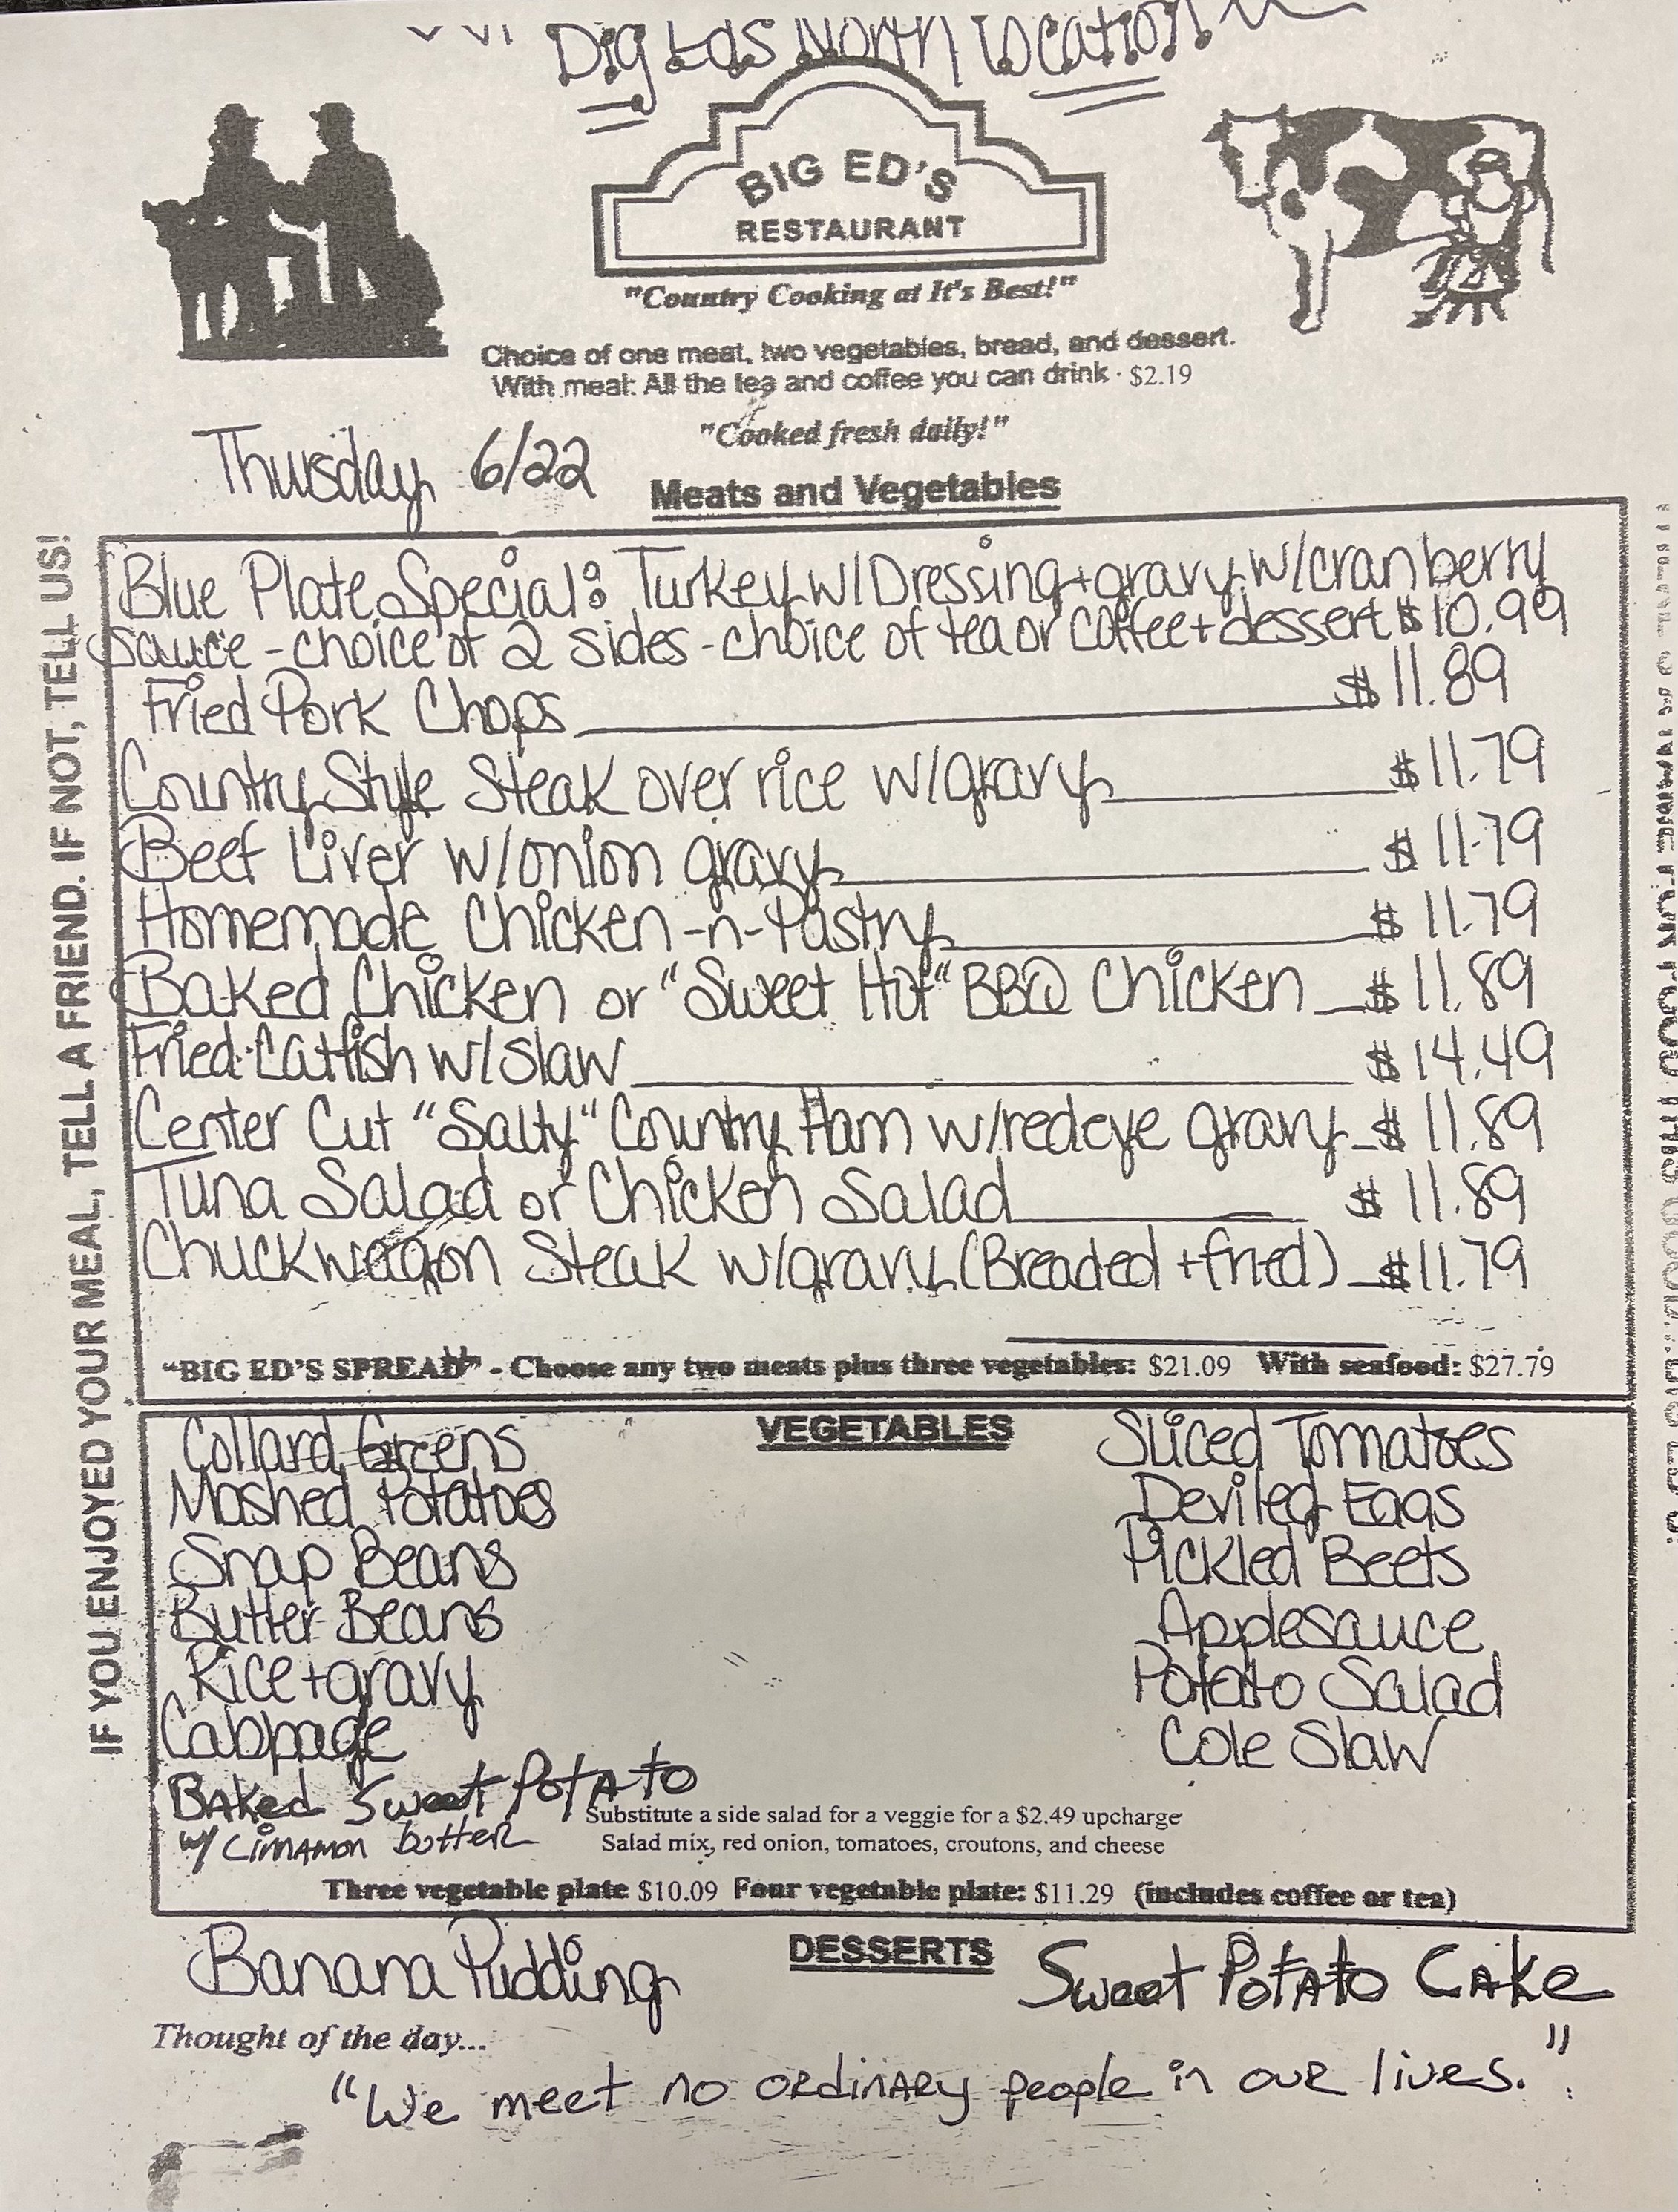 Big Eds North Location
BIG ED'S
RESTAURANT
"Country Cooking at It's Best!"
Choice of one meat, two vegetables, bread, and dessert.
With meal: All the tea and coffee you can drink · $2.19
"Cooked fresh daily!"
Thursday 6/22
Meats and Vegetables
IF YOU ENJOYED YOUR MEAL, TELL A FRIEND. IF NOT, TELL US!
Blue Plate Special: Turkey w/Dressing+gravy w/cranberry
sauce - choice of 2 sides - choice of tea or coffee + dessert $10.99
Fried Pork Chops $11.89
Country Style Steak over rice w/gravy $11.79
Beef Liver w/onion gravy $11.79
Homemade Chicken-n-Pastry $11.79
Baked Chicken or "Sweet Hot" BBQ Chicken $11.89
Fried Catfish w/slaw $14.49
Center Cut "Salty" Country Ham w/redeye gravy $11.89
Tuna Salad or Chicken Salad $11.89
Chuckwagon Steak w/gravy (Breaded + fried) $11.79
"BIG ED'S SPREAD" - Choose any two meats plus three vegetables: $21.09 With seafood: $27.79
VEGETABLES
Collard Greens
Mashed Potatoes
Snap Beans
Butter Beans
Rice + gravy
Cabbage
Baked Sweet Potato
w/ Cinnamon butter
Sliced Tomatoes
Deviled Eggs
Pickled Beets
Applesauce
Potato Salad
Cole Slaw
Substitute a side salad for a veggie for a $2.49 upcharge
Salad mix, red onion, tomatoes, croutons, and cheese
Three vegetable plate $10.09 Four vegetable plate: $11.29 (includes coffee or tea)
DESSERTS
Banana Pudding
Sweet Potato Cake
Thought of the day...
"We meet no ordinary people in our lives."